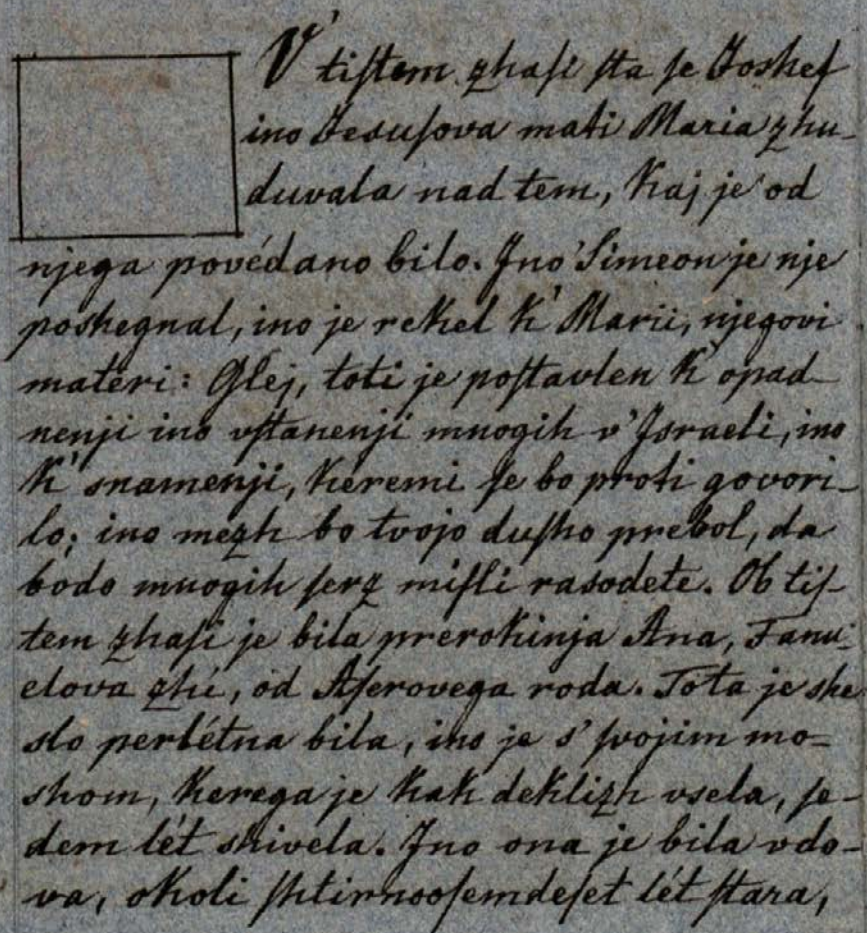 V' tiſtem zhaſi ſta ſe Joshef
ino Jesuſova mati Maria zhu-
duvala nad tem, kaj je od
njega povédano bilo. Ino Simeon je nje
poshegnal, ino je rekel k' Marii, njegovi
materi: Glej, toti je poſtavlen k' opad-
nenji ino vſtanenji mnogih v' Israeli, ino
k' snamenji, keremi ſe bo proti govori-
lo; ino mezh bo tvojo duſho prebol, da
bodo mnogih ſerz miſli rasodete. Ob tiſ-
tem zhaſi je bila prerokinja Ana, Fanu-
elova zhi, od Aſerovega roda. Tota je she
slo perlétna bila, ino je s' ſvojim mo-
shom, kerega je kak deklizh vsela, ſe-
dem lét shivela. Ino ona je bila vdo-
va, okoli ſhtirnooſemdeſet lét ſtara,